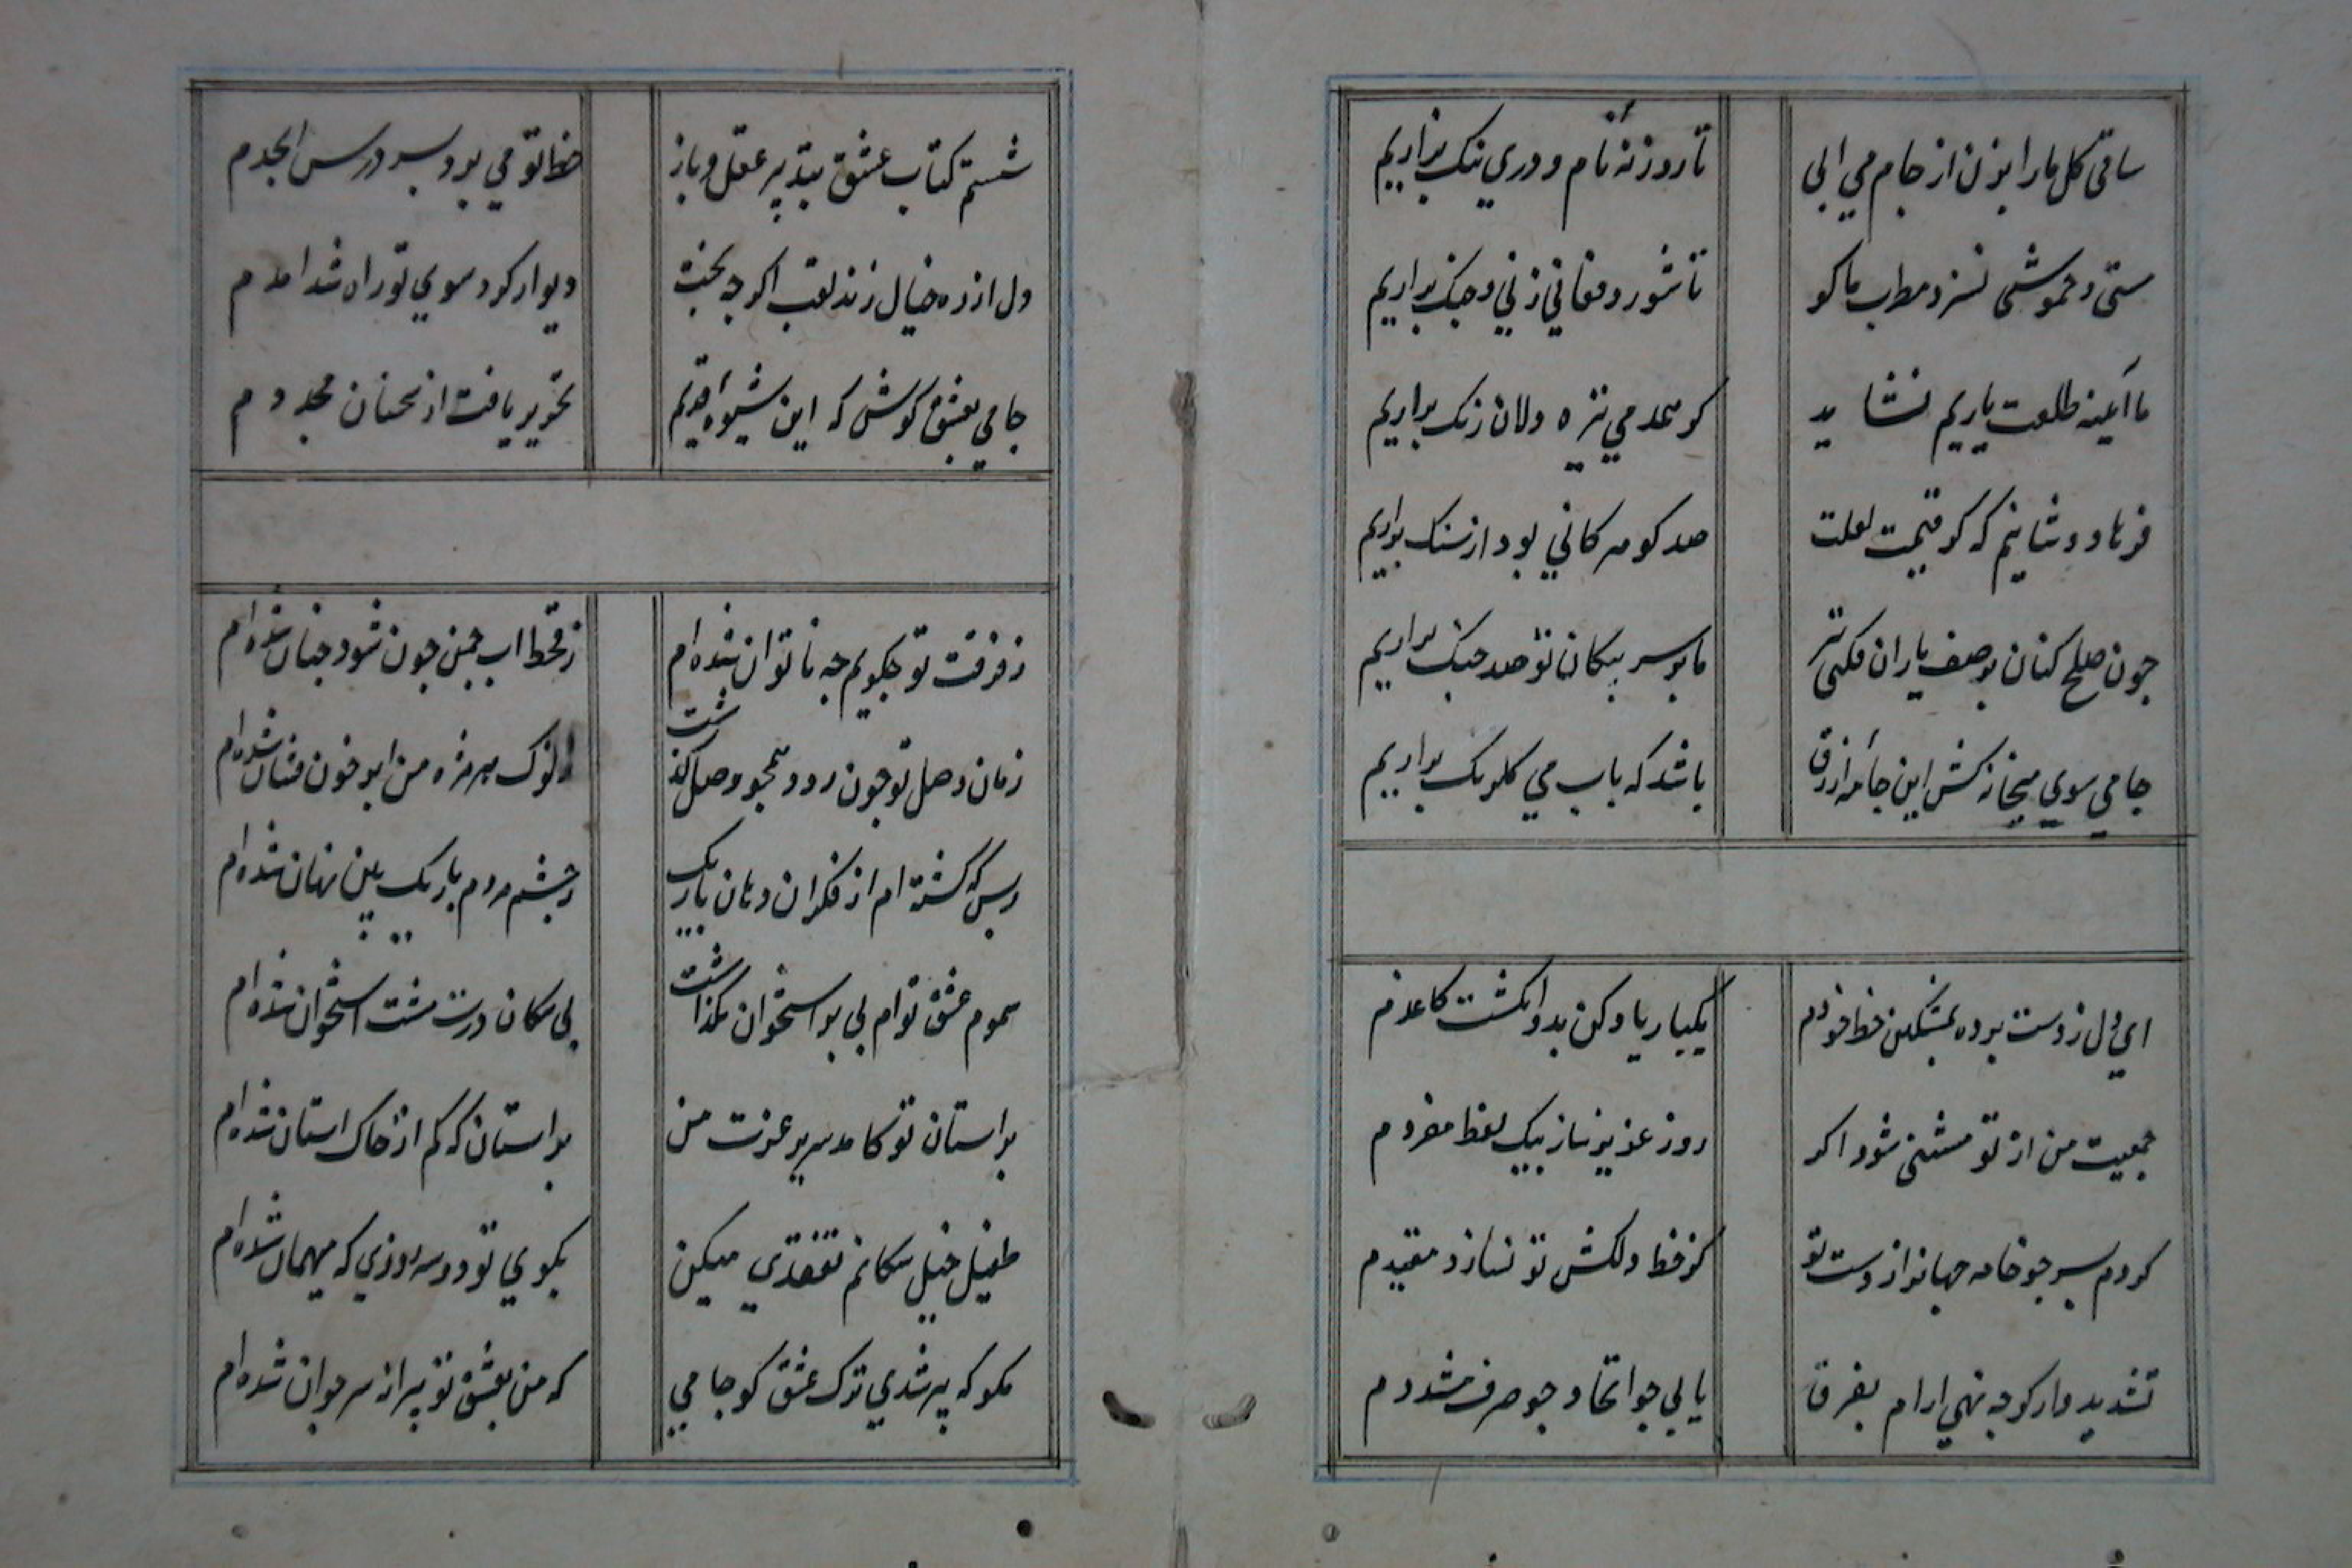 ساقی کل ما را بزن از جام می ابی
تا روزنه نام و دری ننک براریم
ستی و خموشی نسزد مطرب ما کو
تا شور و فغانی زنی و چنک براریم
ما آیینه طلعت یاریم نشاید
کر همدمی تیره دلان زنک براریم
فرهاد وشانیم که کر قیمت لعلت
صد کوهر کانی بود از سنک براریم
چون صلح کنان بر صف یاران فکنی تیر
ما بر سر پیکان تو صد جنک براریم
جامی سوی میخانه کش این جامه ازرق
باشد که باب می کلرنک براریم
ای دل ز دست برده بمشکین خط خودم
یکبار یاد کن بدو انکشت کاغذم
جمعیت من از تو مثنی شود اکر
روزی عزیز ساز بیک لفظ مفردم
کردم سر چو خامه جهانرا ز دست تو
کز خط دلکش تو نسازد مقیدم
تشدید وار کر چه نهی ارام بفرق
یابی جو اتحاد جو حرف مشددم
شستم کتاب عشق بتدبیر عقل و باز
خط تو می برد بسر درس ابجدم
دل از ره خیال زند نقب اکر چه بخت
دیوار کرد سوی تو راه شد امدم
جامی بعشق کوش که این شیوه قدیم
تحریر یافت از سخنان مجددم
ز فرقت تو چکویم چه ناتوان شده ام
ز قحط اب چمن چون شود چنان شده ام
زمان وصل تو چون رود همچو وصل کذشت
ز نوک هر مژه من ابر خون فشان شده ام
زبس که کشته ام از فکر ان دهان باریک
ز چشم مردم باریک بین نهان شده ام
سموم عشق توام بی بر استخوان نکذاشت
پی سکان درت مشت استخوان شده ام
بر استان تو کامد سریر عزت من
بر استان که کم از خاک استان شده ام
طفیل خیل سکانم تفقدی میکن
بکوی تو دو سه روزی که میهمان شده ام
مکو که پیر شدی ترک عشق کو جامی
که من بعشق تو پیرانه سر جوان شده ام